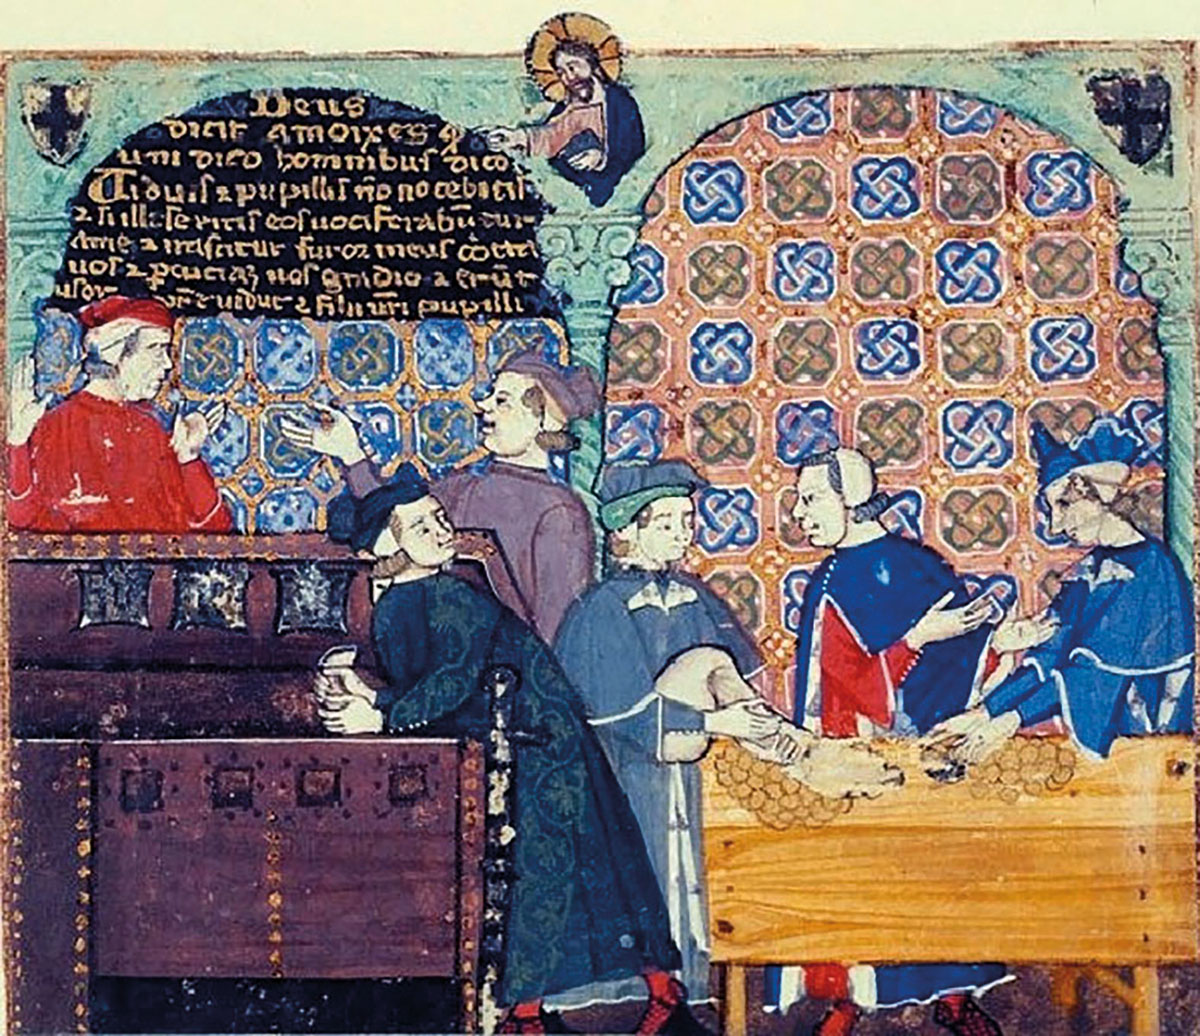 Deus
dicit amoixes q̄
uni dico hominibus dico
Viduis & pupillis nō nocebitis
& si illeseritis eos uociferabūtur
Ame & irascitur furor meus cōtra
uos & pcuciā uos gladio & erūt
uidue & filii ur̄i pupilli